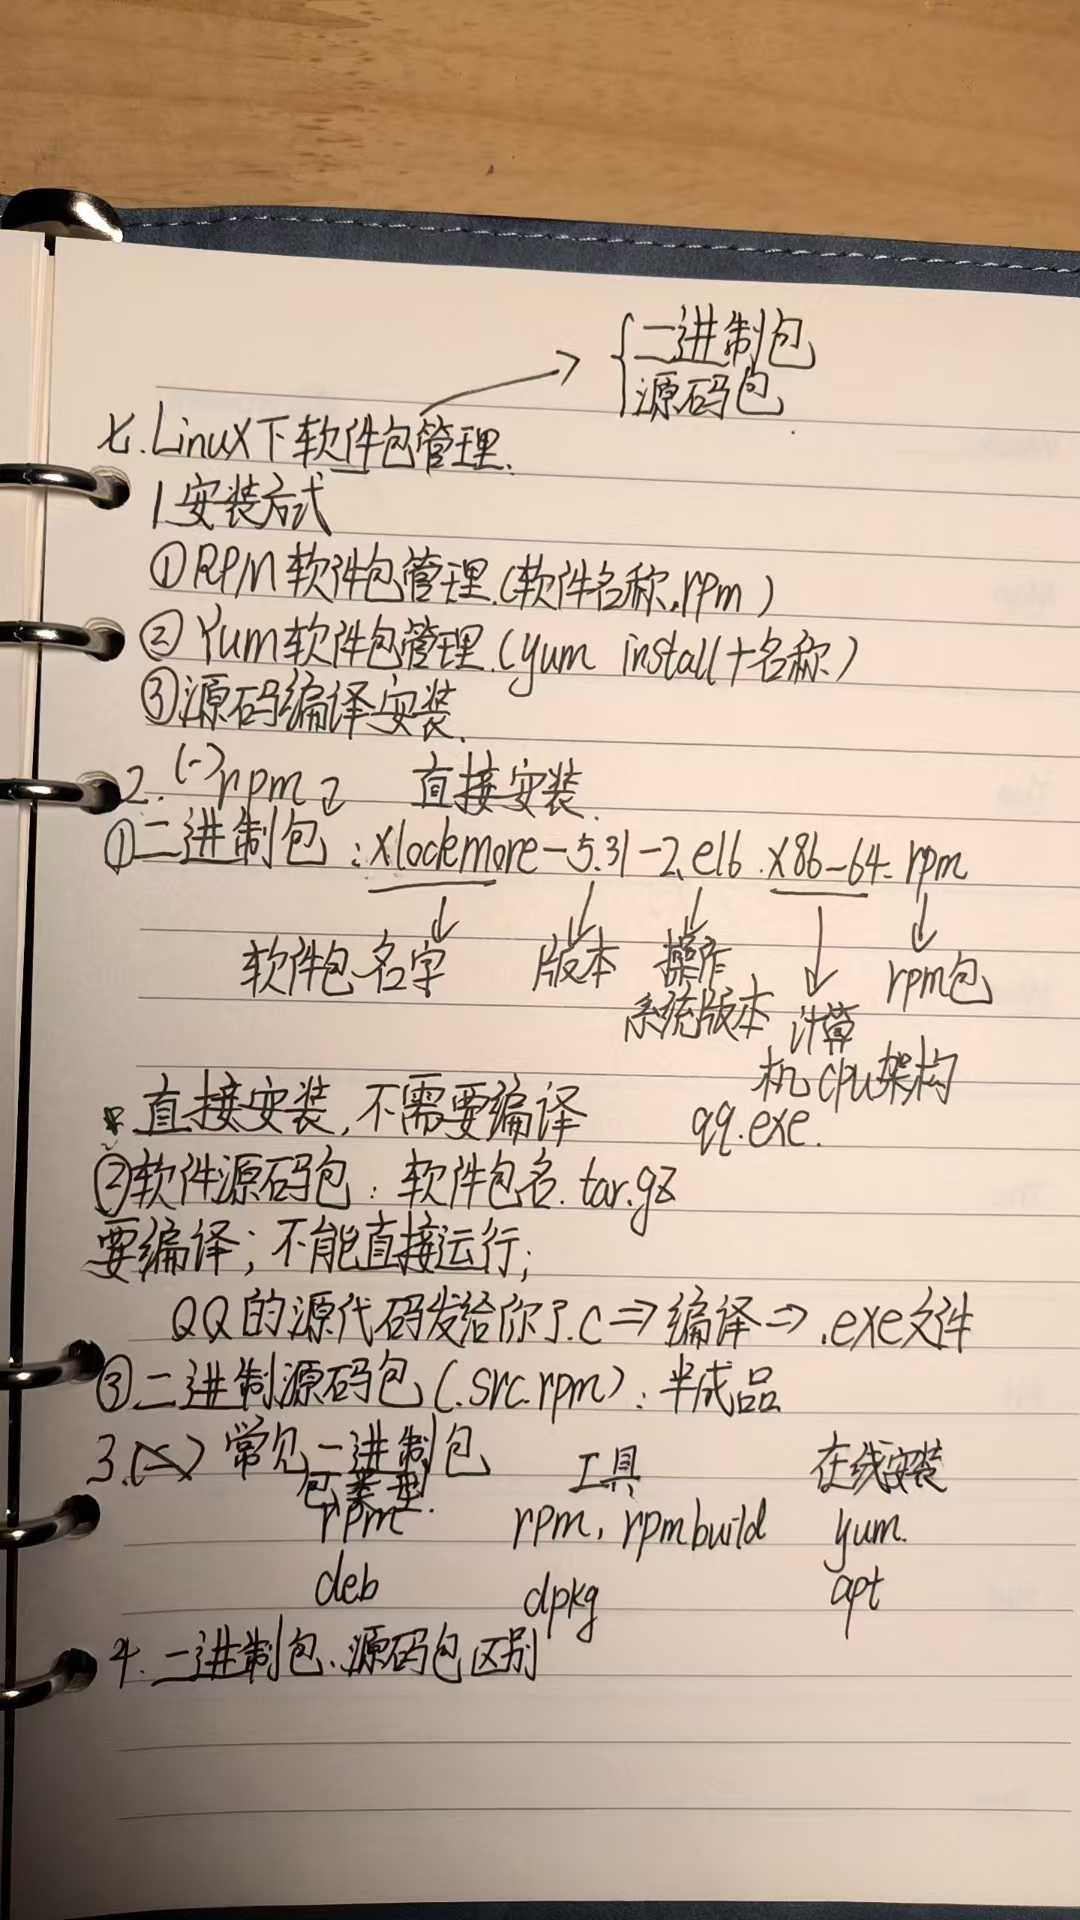 二进制包
源码包
七.Linux下软件包管理.
1.安装方式
①RPM软件包管理.(软件名称.rpm)
②Yum软件包管理.(yum install+名称)
③源码编译安装.
2.(一)rpm 直接安装.
①二进制包:xlockmore-5.31-2.el6.x86-64.rpm
软件包名字 版本 操作系统版本 计算机cpu架构 rpm包
*直接安装,不需要编译 qq.exe.
②软件源码包:软件包名.tar.gz
要编译;不能直接运行;
QQ的源代码发给你了.c⇒编译⇒.exe文件
③二进制源码包(.src.rpm):半成品
3.(二)常见二进制包
包类型. 工具 在线安装
rpm rpm,rpmbuild yum.
deb dpkg apt
4.二进制包、源码包区别